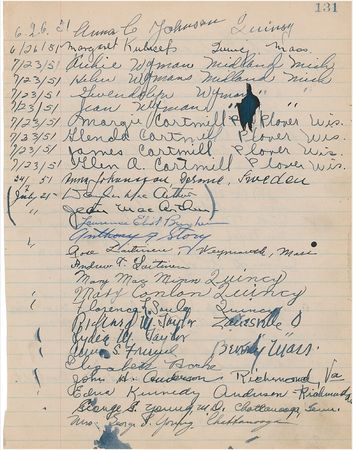 131
6-26-51 Anna C Johnson Quincy
6/26/51 Margaret Quincy Mass.
7/23/51 Archie Wyman Midland Mich
7/23/51 Helen Wymans Midland Mich
7/23/51 Gwendolyn Wyman " "
7/23/51 Jean Wymans " "
7/23/51 Margie Cartmill Plover Wis.
7/23/51 Glenda Cartmill Plover Wis.
7/23/51 James Cartmill Plover Wis.
7/23/51 Glen A. Cartmill Plover Wis.
24/7 51 Anna Johansson Sweden
July 25 Mac Arthur
Jean MacArthur
Laurence Eliot
Anthony A. Story
Weymouth, Mass
Andrew
Mary May Quincy
Mary Conlon Quincy
Florence Quincy
Richard W. Taylor Zanesville O
W. Taylor
S. Beverly Mass.
Elizabeth
John H. Anderson Richmond, Va
Edna Kennedy Anderson Richmond
George S. Young M.D. Chattanooga, Tenn.
Mrs. George S. Young Chattanooga